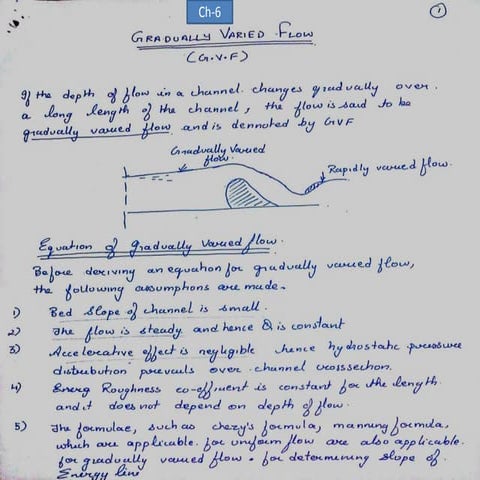 Ch-6
1
GRADUALLY VARIED FLOW
(G.V.F)
If the depth of flow in a channel changes gradually over
a long length of the channel, the flow is said to be
gradually varied flow and is dennoted by GVF
Gradually Varied
flow.
Rapidly varied flow.
Equation of gradually varied flow.
Before deriving an equation for gradually varied flow,
the following assumptions are made-
1) Bed slope of channel is small.
2) The flow is steady and hence Q is constant
3) Accelerative effect is negligible hence hydrostatic pressure
distribution prevails over channel crosssection.
4) Energ Roughness co-effiuent is constant for the length
and it does not depend on depth of flow.
5) The formulae, such as chezy's formula, manning formula,
which are applicable for uniform flow are also applicable
for gradually varied flow. for determining slope of
Energy line